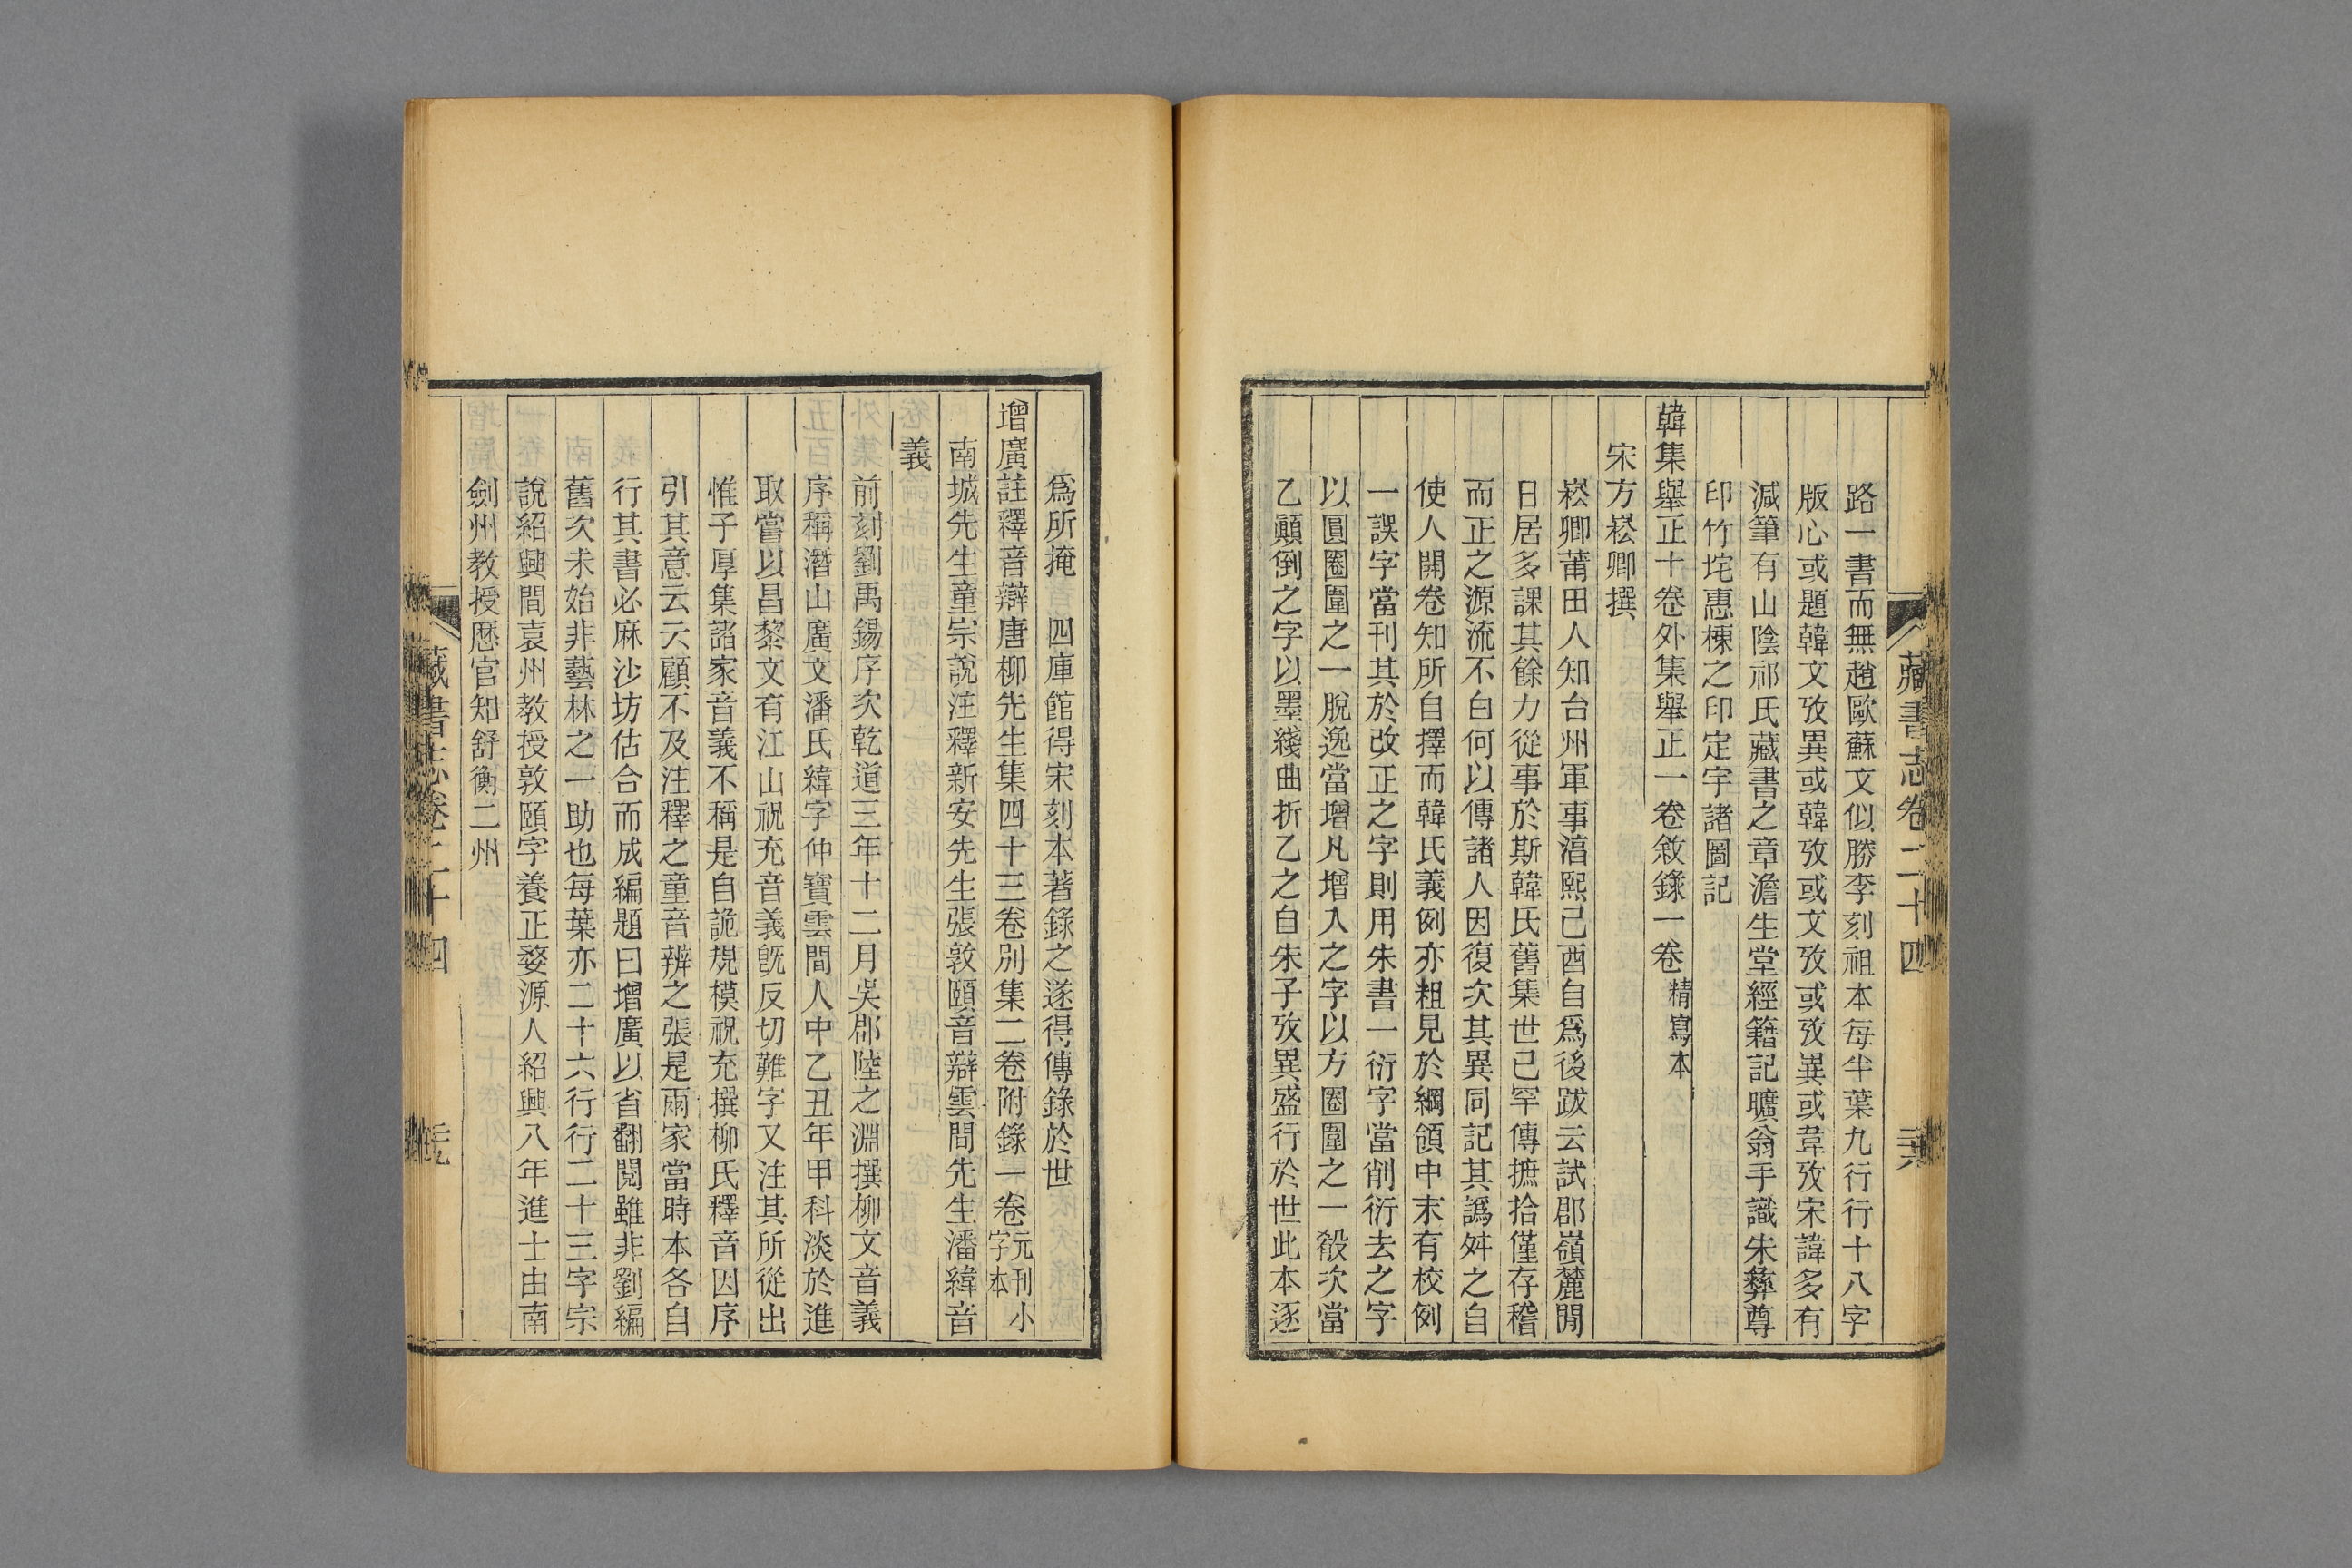 藏書志卷二十四
路一書而無趙歐蘇文似勝李刻祖本每半葉九行行十八字
版心或題韓文攷異或韓攷或文攷或攷異或韋攷宋諱多有
減筆有山陰祁氏藏書之章澹生堂經籍記曠翁手識朱彝尊
印竹垞惠棟之印定宇諸圖記
韓集舉正十卷外集舉正一卷敘錄一卷 精寫本
宋方崧卿撰
崧卿莆田人知台州軍事淳熙己酉自爲後跋云試郡嶺麓閒
日居多課其餘力從事於斯韓氏舊集世已罕傳摭拾僅存稽
而正之源流不白何以傳諸人因復次其異同記其譌舛之自
使人開卷知所自擇而韓氏義例亦粗見於綱領中末有校例
一誤字當刊其於改正之字則用朱書一衍字當削衍去之字
以圓圈圍之一脫逸當增凡增入之字以方圈圍之一殽次當
乙顚倒之字以墨綫曲折乙之自朱子攷異盛行於世此本遂
爲所掩 四庫館得宋刻本著錄之遂得傳錄於世
增廣註釋音辯唐柳先生集四十三卷別集二卷附錄一卷 元刊小字本
南城先生童宗說注釋新安先生張敦頤音辯雲間先生潘緯音
義
前刻劉禹錫序次乾道三年十二月吳郡陸之淵撰柳文音義
序稱潛山廣文潘氏緯字仲寶雲間人中乙丑年甲科淡於進
取嘗以昌黎文有江山祝充音義旣反切難字又注其所從出
惟子厚集諸家音義不稱是自詭規模祝充撰柳氏釋音因序
引其意云云顧不及注釋之童音辨之張是兩家當時本各自
行其書必麻沙坊估合而成編題曰增廣以省翻閱雖非劉編
舊次未始非藝林之一助也每葉亦二十六行行二十三字宗
說紹興間袁州教授敦頤字養正婺源人紹興八年進士由南
劍州教授歷官知舒衡二州
藏書志卷二十四